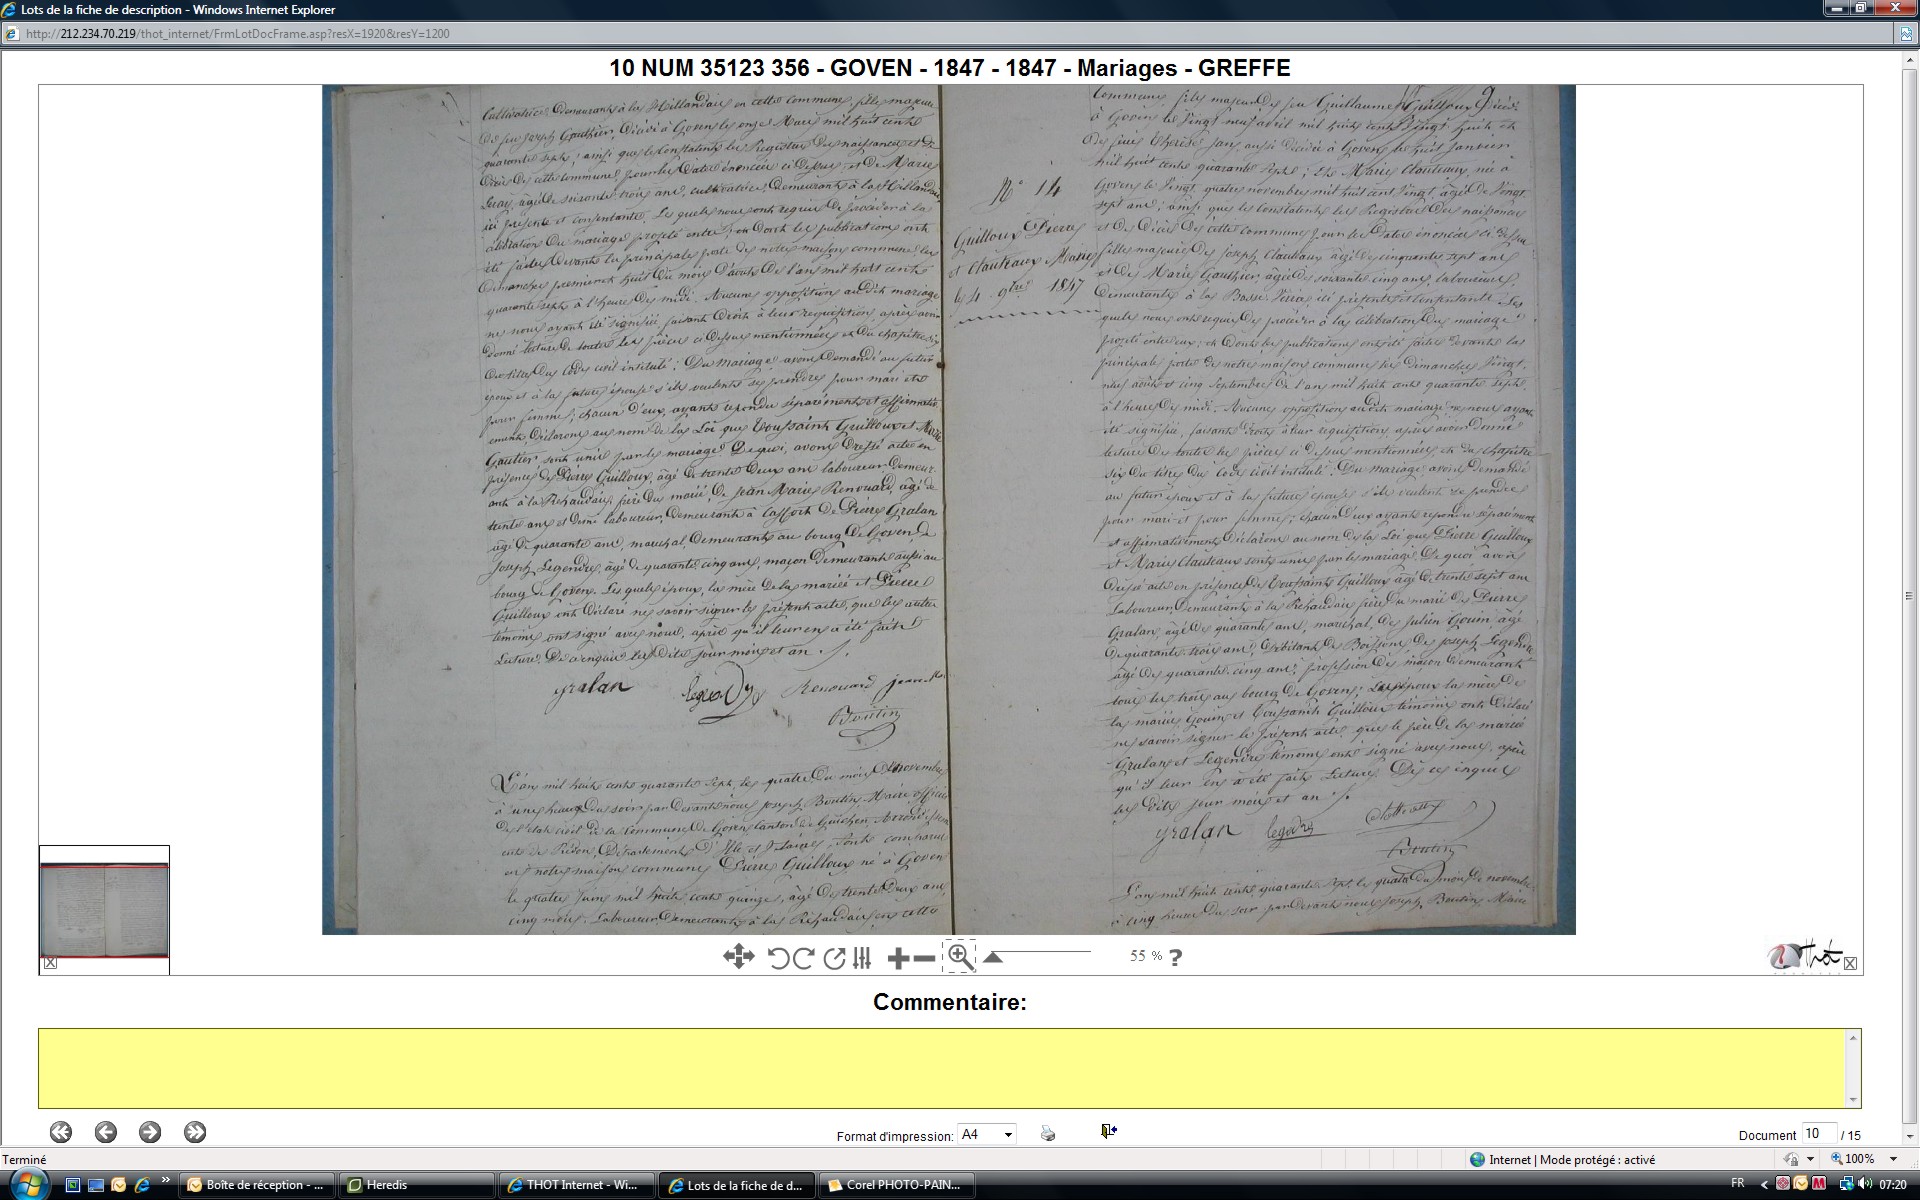 Lots de la fiche de description - Windows Internet Explorer
http://212.234.70.219/thot_internet/FrmLotDocFrame.asp?resX=1920&resY=1200
10 NUM 35123 356 - GOVEN - 1847 - 1847 - Mariages - GREFFE
demeurante à la en cette commune, fille majeure
de feu Joseph Gauthier, décédé à Goven le onze Mars mil huit cent
quarante sept; ainsi que le constatent les Registres des naissances et de
décès de cette commune, pour les dates énoncées ci dessus, et de Marie
âgée de soixante trois ans, cultivatrice, demeurante à la
ici présente et consentante. Les quels nous ont requis de procéder à la
célébration du mariage projeté entre eux et dont les publications ont
été faites devant la principale porte de notre maison commune, les
dimanches premier et huit du mois d'août de l'an mil huit cent
quarante sept à l'heure de midi. Aucune opposition au dit mariage
ne nous ayant été signifiée, faisant droit à leur requisition, après avoir
donné lecture de toutes les pièces ci dessus mentionnées et du chapitre six
du titre du code civil intitulé: Du mariage, avons demandé au futur
époux et à la future épouse s'ils veulent se prendre pour mari et
pour femme; chacun d'eux, ayant repondu séparément et affirmative-
ement déclarons au nom de la Loi que Toussaint Guilloux et Marie
Gautier sont unis par le mariage. De quoi, avons dressé acte en
présence de Pierre Guilloux, âgé de trente deux ans laboureur, demeur-
ant à la Rehaudais, frère du marié, de Jean Marie Renouard, âgé de
trente ans et demi laboureur, demeurant à de Pierre Gralan
âgé de quarante ans, marechal, demeurant au bourg de Goven, de
Joseph Legendre, âgé de quarante cinq ans, maçon demeurant aussi au
bourg de Goven. Les quels époux, la mère de la mariée et Pierre
Guilloux ont déclaré ne savoir signer le présent acte, que les autres
témoins ont signé avec nous, après qu'il leur en a été fait
Lecture. De ce enquis les dits jour mois et an ./.
gralan Renouard jean
Boutin
L'an mil huit cent quarante sept, le quatre du mois de novembre
à une heure du soir par devant nous Joseph Boutin, Maire officier
de l'état civil de la commune de Goven, canton de Guichen, Arrondissem-
ent de Redon, Département d'Ille et Vilaine, sont comparus
en notre maison commune Pierre Guilloux, né à Goven
le quatre Juin mil huit cent quinze, âgé de trente deux ans,
cinq mois. Laboureur, demeurant à la Rehaudais en cette
N° 14
Guilloux Pierre
et Clauteaux Marie
le 4 9bre 1847
Commune, fils majeur de feu Guillaume Guilloux décédé
à Goven le vingt neuf avril mil huit cent vingt huit, et
de feue Thérèse aussi décédée à Goven le huit janvier
mil huit cent quarante sept; Et Marie Clauteaux, née à
Goven le vingt quatre novembre mil huit cent vingt âgée de vingt
sept ans; ainsi que le constatent les Registres des naissances
et de décès de cette commune pour les dates énoncées ci dessus
fille majeure de Joseph Clauteaux âgé de cinquante sept ans
et de Marie Gauthier, âgée de soixante cinq ans, laboureurs,
demeurants à la Basse ici présents et consentants. Les
quels nous ont requis de procéder à la célébration du mariage
projeté entre eux; et dont les publications ont été faites devant la
principale porte de notre maison commune les dimanches vingt
neuf août et cinq Septembre de l'an mil huit cent quarante sept
à l'heure de midi. Aucune opposition au dit mariage ne nous ayant
été signifiée, faisant droit à leur requisition, après avoir donné
lecture de toutes les pièces ci dessus mentionnées, et du chapitre
six du titre du code civil intitulé: Du mariage, avons demandé
au futur époux et à la future épouse s'ils veulent se prendre
pour mari et pour femme; chacun d'eux ayant repondu séparément
et affirmativement, déclarons au nom de la Loi que Pierre Guilloux
et Marie Clauteaux sont unis par le mariage. De quoi avons
dressé acte en présence de Toussaint Guilloux âgé de trente sept ans
Laboureur, demeurant à la Rehaudais frère du marié de Pierre
Gralan, âgé de quarante ans, marechal, de Julien Gouin âgé
de quarante trois ans, débitant de Boissons, de Joseph Legendre
âgé de quarante cinq ans, profession de maçon demeurant
tous les trois au bourg de Goven; Les époux la mère de
la mariée, Gouin et Toussaint Guilloux témoins ont déclaré
ne savoir signer le présent acte, que le père de la mariée
Gralan et Legendre témoins ont signé avec nous, après
qu'il leur en a été fait Lecture. De ce enquis
les dits jour mois et an ./.
gralan legendre
Boutin
L'an mil huit cent quarante sept, le quatre du mois de novembre
à cinq heures du soir par devant nous Joseph Boutin Maire
55 % ?
Thot
Commentaire:
Format d'impression: A4
Document 10 / 15
Terminé
Internet | Mode protégé : activé
100%
Boîte de réception - ...
Heredis
THOT Internet - Wi...
Lots de la fiche de d...
Corel PHOTO-PAIN...
FR
07:20